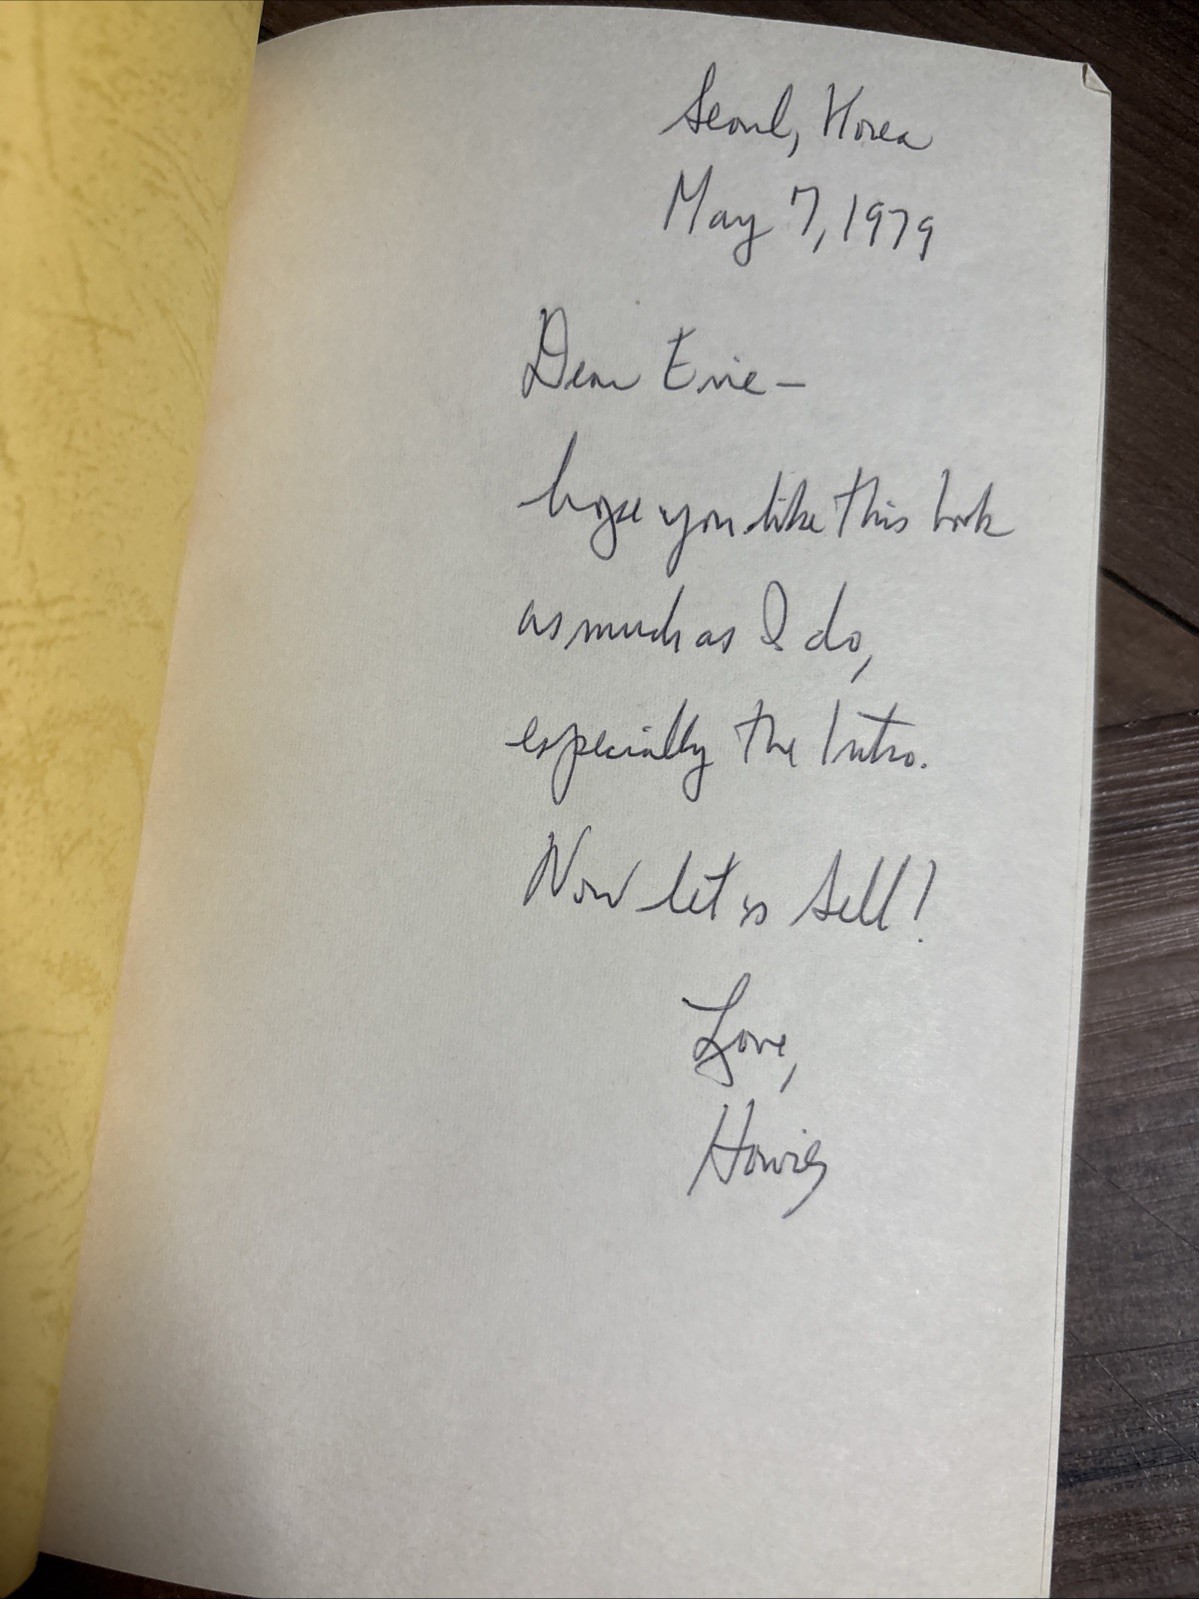 Seoul, Korea
May 7, 1979
Dear Evie –
hope you like this book
as much as I do,
especially the Intro.
Now let us sell!
Love,
Howie